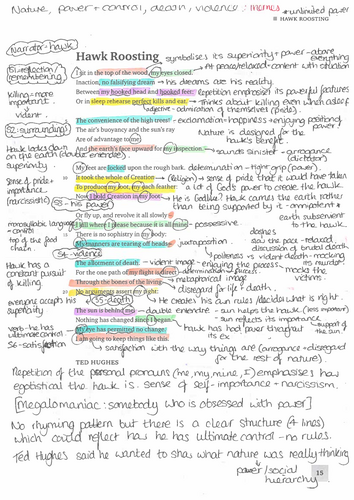 Nature, power + control, death, violence : themes
+ unlimited power
HAWK ROOSTING
Narrator - hawk
Hawk Roosting
symbolises its superiority + power - above everything
S1 - reflection/ remembering
I sit in the top of the wood, my eyes closed.
At peace/relaxed - content with situation
Inaction, no falsifying dream
his dreams are his reality.
Killing = more important. violent.
Between my hooked head and hooked feet:
Repetition emphasises its powerful features
Or in sleep rehearse perfect kills and eat.
Thinks about killing even when asleep
adjective - admiration of themselves (pride).
The convenience of the high trees!
exclamation = happiness + enjoying position of power!
S2 - surroundings
The air's buoyancy and the sun's ray
Nature is designed for the hawk's benefit.
Are of advantage to me;
Hawk looks down on the earth (double entendre) superiority
And the earth's face upward for my inspection.
sounds sinister - arrogance (dictator)
My feet are locked upon the rough bark.
determination - tight grip (power)
Sense of pride + importance. (narcissistic)
It took the whole of Creation
(Religion) - sense of pride that it would have taken a lot of God's power to create the hawk.
To produce my foot, my each feather:
Now I hold Creation in my foot
He is Godlike? Hawk carries the earth rather than being supported by it - omnipotent +
S3 - Its power
Or fly up, and revolve it all slowly
earth subservient to the hawk.
I kill where I please because it is all mine.
possessive.
There is no sophistry in my body:
My manners are tearing off heads
juxtaposition
top of the food chain.
S4 - violence
politeness vs violent death - mocking its murder.
The allotment of death.
violent image - enjoying the process
mocks the victims
Hawk has a constant pursuit of killing
For the one path of my flight is direct
Through the bones of the living.
metaphorical image
disregard for life + death.
No arguments assert my right:
everyone accepts his superiority
S5 - death
He creates his own rules / decides what is right.
The sun is behind me
double entendre - sun helps the hawk (less important)
Nothing has changed since I began.
sun reflects its importance
support of the sun.
verb - he has ultimate control
My eye has permitted no change.
hawk has had power throughout its life
S6 - satisfaction
I am going to keep things like this.
satisfaction with the way things are (arrogance + disregard for the rest of nature)
TED HUGHES
Repetition of the personal pronouns (me, my, mine, I) emphasises how
egotistical the hawk is. sense of self-importance + narcissism.
[Megalomaniac: somebody who is obsessed with power]
No rhyming pattern but there is a clear structure (4 lines)
which could reflect how he has ultimate control - no rules.
Ted Hughes said he wanted to show what nature was really thinking
power/social hierarchy
15